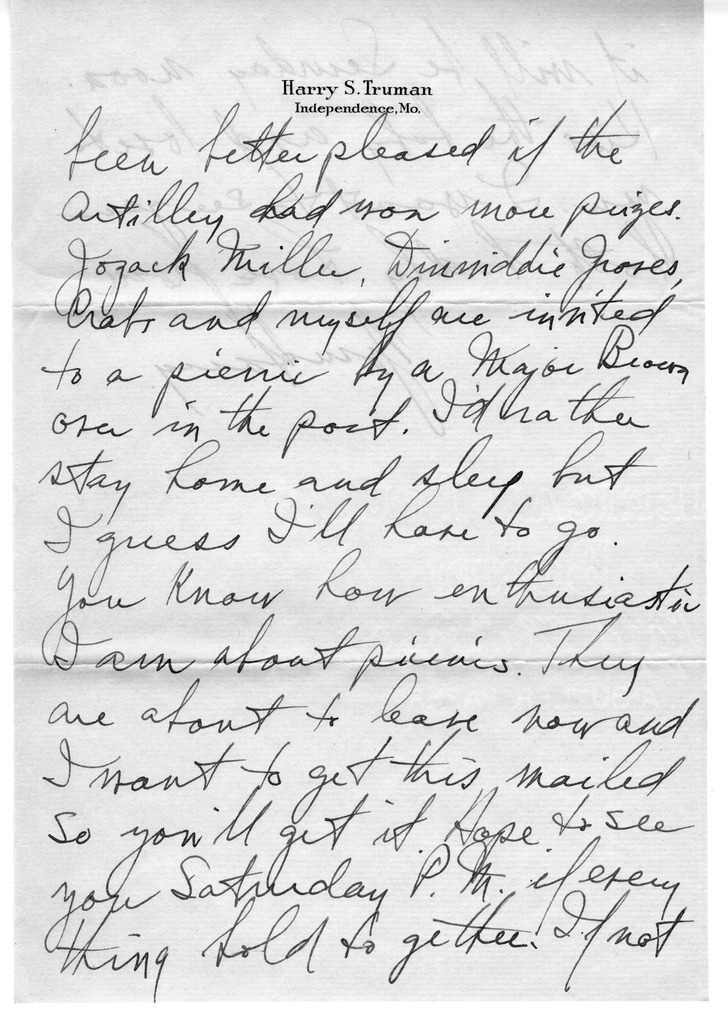 Harry S. Truman
Independence, Mo.
been better pleased if the
Artillery had won more prizes.
Jozack Miller, Dinwiddie Groves,
and myself are invited
to a picnic by a Major Brown
over in the post. I'd rather
stay home and sleep but
I guess I'll have to go.
You know how enthusiastic
I am about picnics. They
are about to leave now and
I want to get this mailed
so you'll get it. Hope to see
you Saturday P.M. if every
thing hold to gether. If not